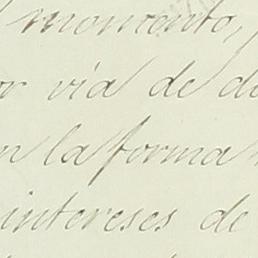 momento,
or vía de de
n la forma
intereses de